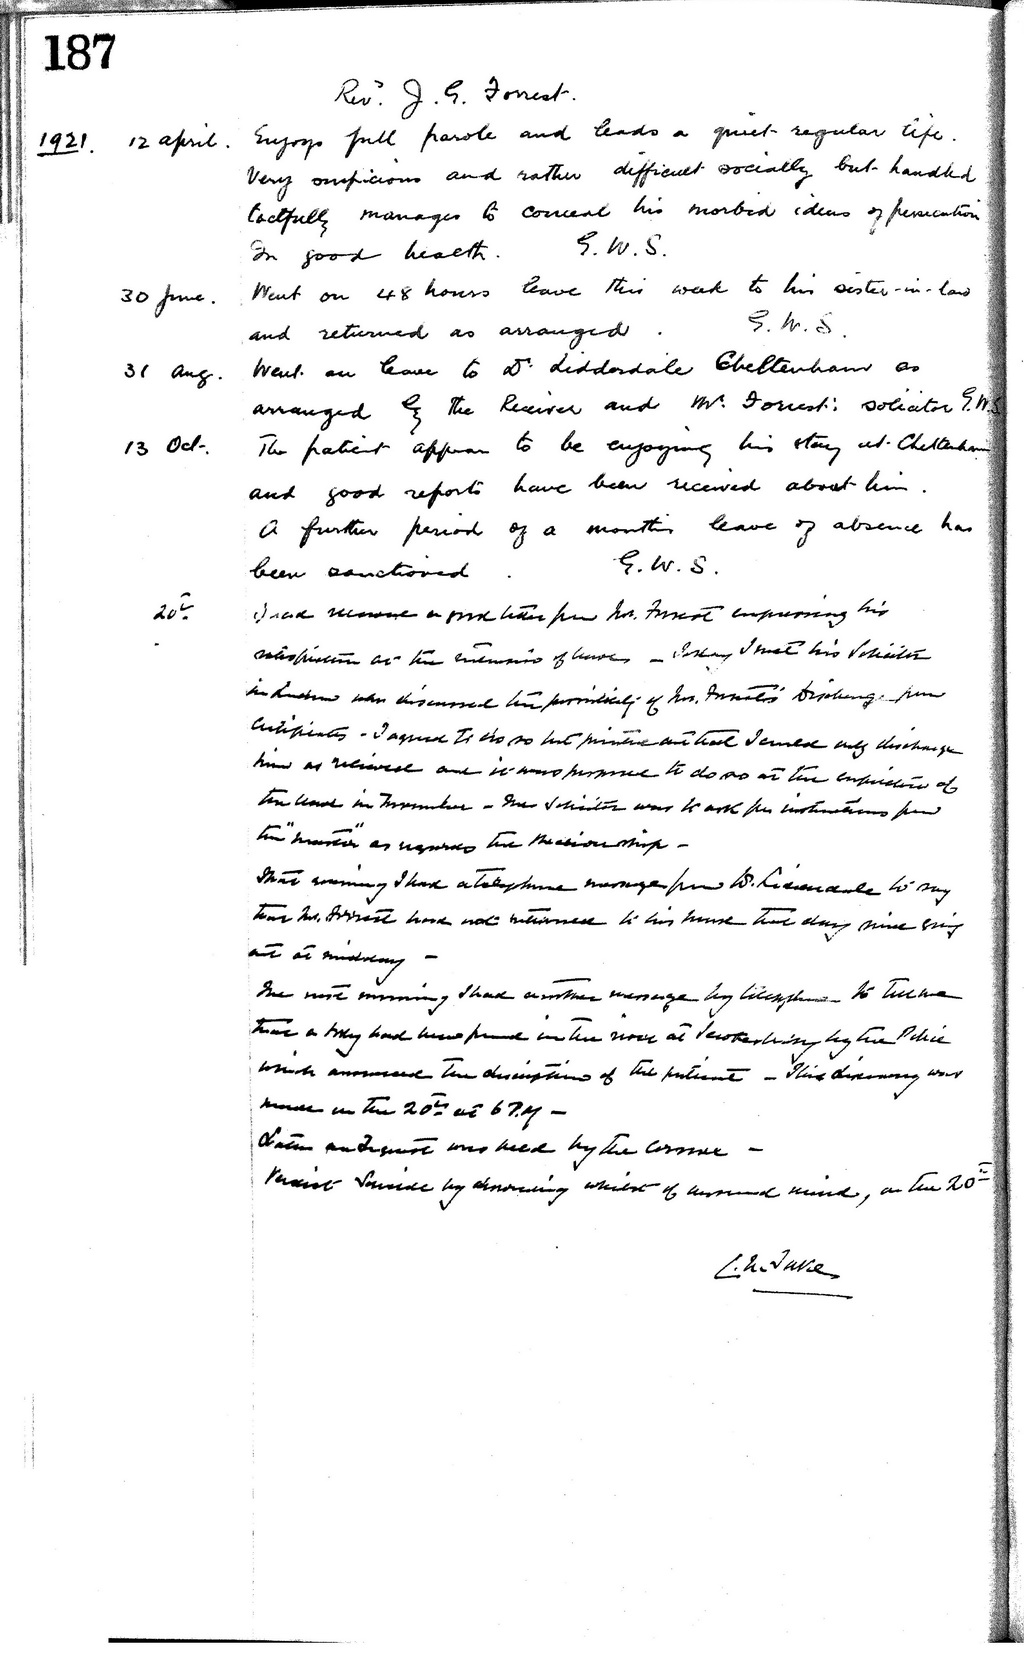 187
Revd. J. G. Forrest.
1921. 12 april. Enjoys full parole and leads a quiet regular life.
Very suspicious and rather difficult socially but handled
tactfully manages to conceal his morbid ideas of persecution
In good health. G.W.S.
30 June. Went on 48 hours leave this week to his sister-in-law
and returned as arranged. G.W.S.
31 Aug. Went on leave to Dr Lidderdale Cheltenham as
arranged by the Receiver and Mr. Forrest's solicitor G.W.S
13 Oct. The patient appears to be enjoying his stay at Cheltenham
and good reports have been received about him.
A further period of a months leave of absence has
been sanctioned. G.W.S.
20th I had received a good letter from Mr. Forrest expressing his
satisfaction at the extension of leave – Today I met his Solicitor
in London who discussed the possibility of Mr. Forrest's Discharge from
Certificates – I agreed to do so but pointed out that I could only discharge
him as relieved and it was proposed to do so at the expiration of
the leave in November – The Solicitor was to ask for instructions from
the "Master" as regards the Receivership –
That evening I had a telephone message from Dr. Lidderdale to say
that Mr. Forrest had not returned to his house that day since going
out at midday –
The next morning I had another message by telephone to tell me
that a body had been found in the river at Tewkesbury by the Police
which answered the description of the patient – This discovery was
made on the 20th at 6 P.M –
Later an Inquest was held by the Coroner –
Verdict Suicide by drowning whilst of unsound mind, on the 20th